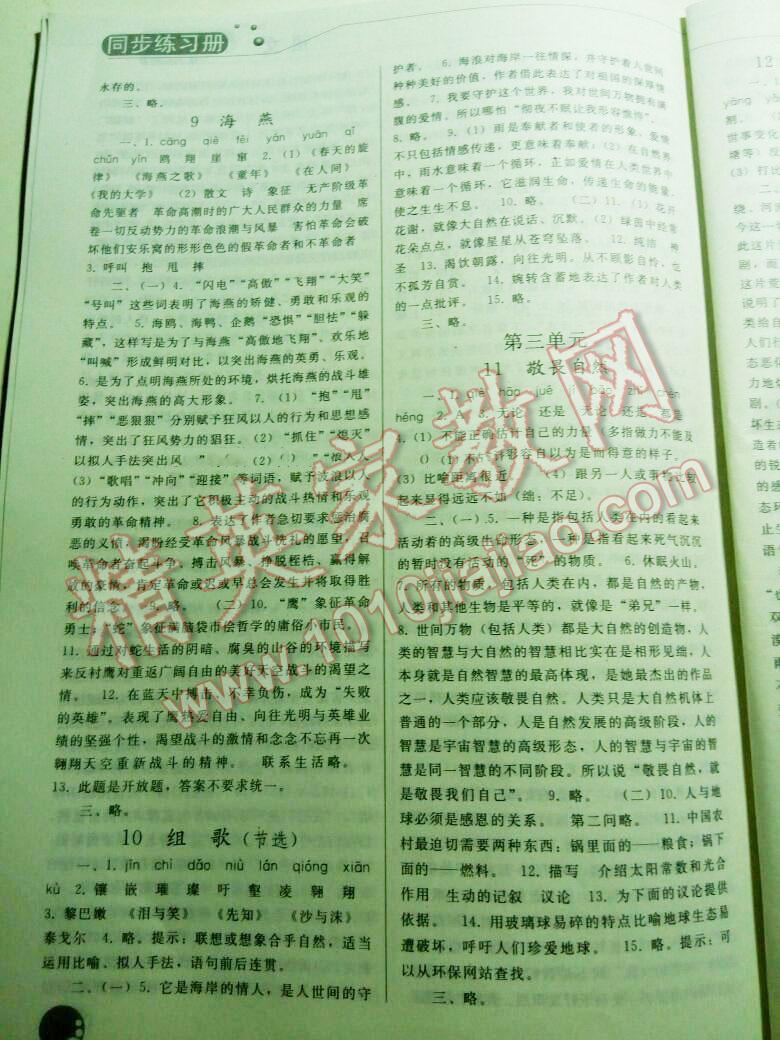 同步练习册
永存的。
三、略。
9 海 燕
一、1. cāng qiè fēi yán yuān qǐ
chǔn yín 鸥 翔 崖 窜 2. (1)《春天的旋
律》 《海燕之歌》 《童年》 《在人间》
《我的大学》 (2) 散文 诗 象征 无产阶级革
命先驱者 革命高潮时的广大人民群众的力量 席
卷一切反动势力的革命浪潮与风暴 害怕革命会破
坏他们安乐窝的形形色色的假革命者和不革命者
3. 呼叫 抱 甩 摔
二、(一) 4. “闪电”“高傲”“飞翔”“大笑”
“号叫”这些词表明了海燕的矫健、勇敢和乐观的
特点。 5. 海鸥、海鸭、企鹅“恐惧”“胆怯”“躲
藏”,这样写是为了与海燕“高傲地飞翔”、欢乐地
“叫喊”形成鲜明对比,以突出海燕的英勇、乐观。
6. 是为了点明海燕所处的环境,烘托海燕的战斗雄
姿,突出海燕的高大形象。 7. (1) “抱”“甩”
“摔”“恶狠狠”分别赋予狂风以人的行为和思想感
情,突出了狂风势力的猖狂。 (2) “抓住”“熄灭”
以拟人手法突出风
(3)“歌唱”“冲向”“迎接”等词语,赋予波浪以人
的行为动作,突出了它积极主动的战斗热情和乐观
勇敢的革命精神。 8. 表达了作者急切要求惩治腐
恶的义愤,渴盼经受革命风暴战斗洗礼的愿望,召
唤革命者奋起战斗、搏击风暴、挣脱桎梏、赢得解
放的豪情,肯定革命或迟或早总会发生并将取得胜
利的信念。 略。 (二) 10. “鹰”象征革命
勇士;“蛇”象征满脑袋市侩哲学的庸俗小市民。
11. 通过对蛇生活的阴暗、腐臭的山谷的环境描写
来反衬鹰对重返广阔自由的美好天空战斗的渴望之
情。 12. 在蓝天中搏击,不幸负伤,成为“失败
的英雄”。表现了鹰热爱自由、向往光明与英雄业
绩的坚强个性,渴望战斗的激情和念念不忘再一次
翱翔天空重新战斗的精神。 联系生活略。
13. 此题是开放题,答案不要求统一。
三、略。
10 组 歌 (节选)
一、1. jìn chì dǎo niǔ lán qióng xiān
kù 2. 镶 嵌 璀 璨 吁 壑 凌 翱 翔
3. 黎巴嫩 《泪与笑》 《先知》 《沙与沫》
泰戈尔 4. 略。提示:联想或想象合乎自然,适当
运用比喻、拟人手法,语句前后连贯。
二、(一) 5. 它是海岸的情人,是人世间的守
护者。 6. 海浪对海岸一往情深,并守护着人世间
种种美好的价值,作者借此表达了对祖国的深厚情
感。 7. 我要守护这个世界,我对世间万物拥有满
腹的爱情。所以哪怕“彻夜不眠让我形容憔悴”。
8. 略。 9. (1) 雨是奉献者和使者的形象,爱情
不只包括情感传递,更意味着奉献;(2) 在自然界
中,雨水意味着一个循环,正如爱情在人类世界中
意味着一个循环,它滋润生命,传递生命的能量,
使之生生不息。 10. 略。 11. (1) 花开
花谢,就像大自然在说话、沉默。 (2) 球茵中经常
花朵点点,就像星星从苍穹坠落。 12. 纯洁 神
圣 13. 渴饮朝露,向往光明。从不顾影自怜,也
不孤芳自赏。 14. 婉转含蓄地表达了作者对人类
的一点批评。 15. 略。
三、略。
第三单元
11 敬畏自然
héng 2. A 3. 无论 还是 无论 还是 都是
4. (1) 不能正确估计自己的力量(多指做力不能及
形容自以为是而得意的样子。
(3) 比喻距离很近 (4) 跟另一人或事物比较
起来显得远远不如(绌:不足)。
二、(一) 5. 一种是指包括人类在内的看起来
活动着的高级生命形态,一种是指看起来死气沉沉
的暂时没有活动的“死”的物质。 6. 休眠火山。
7. 所有的物质,包括人类在内,都是自然的产物,
人类和其他生物是平等的,就像是“弟兄”一样。
8. 世间万物(包括人类)都是大自然的创造物,人
类的智慧与大自然的智慧相比实在是相形见绌,人
本身就是自然智慧的最高体现,是她最杰出的作品
之一,人类应该敬畏自然。人类只是大自然机体上
普通的一个部分,人是自然发展的高级阶段,人的
智慧是宇宙智慧的高级形态,人的智慧与宇宙的智
慧是同一智慧的不同阶段。所以说“敬畏自然,就
是敬畏我们自己”。 9. 略。 (二) 10. 人与地
球必须是感恩的关系。 第二问略。 11. 中国农
村最迫切需要两种东西:锅里面的——粮食;锅下
面的——燃料。 12. 描写 介绍太阳常数和光合
作用 生动的记叙 议论 13. 为下面的议论提供
依据。 14. 用玻璃球易碎的特点比喻地球生态易
遭破坏,呼吁人们珍爱地球。 15. 略。提示:可
以从环保网站查找。
三、略。
精英家教网
www.1010jiajiao.com